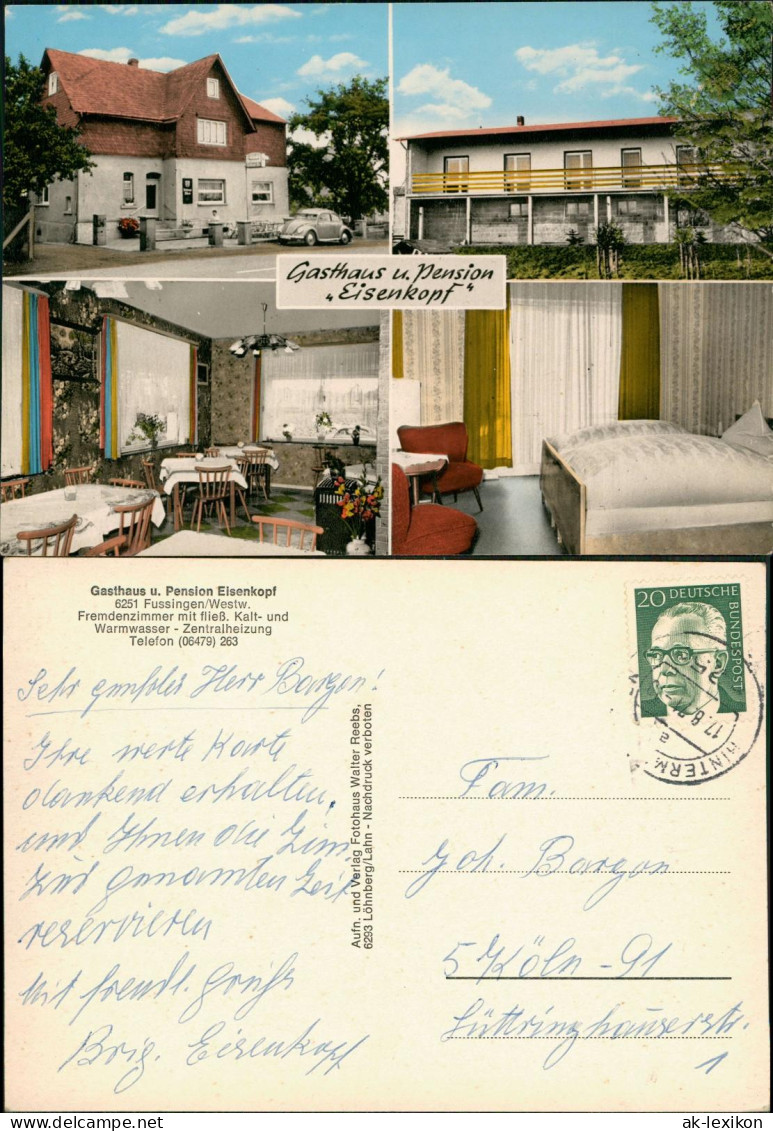 Gasthaus u. Pension
"Eisenkopf"
Gasthaus u. Pension Eisenkopf
6251 Fussingen/Westw.
Fremdenzimmer mit fließ. Kalt- und
Warmwasser - Zentralheizung
Telefon (06479) 263
Sehr geehrter Herr Bargon!
Ihre werte Karte
dankend erhalten,
und Ihnen die Zim.
zur genannten Zeit
reservieren
Mit freundl. Grüß
Brig. Eisenkopf
Aufn. und Verlag Fotohaus Walter Reebs,
6293 Löhnberg/Lahn - Nachdruck verboten
20 DEUTSCHE
BUNDESPOST
17.8.
a
HINTERM
Fam.
Joh. Bargon
5 Köln-91
Lüttringhauserstr.
1
www.delcampe.net
ak-lexikon